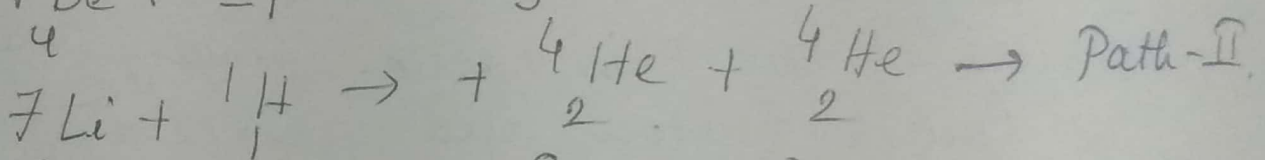 4
7 Li + ¹₁H → + ⁴₂He + ⁴₂He → Path-II.